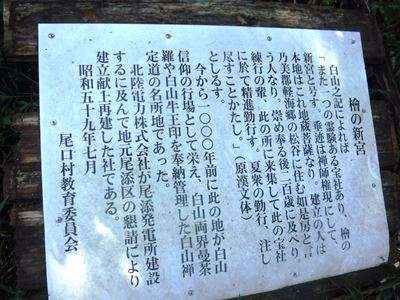 檜の新宮
白山之記によれば
「また一つの霊験ある宝社あり、檜の
新宮と号す、垂迹は禅師権現にして、
本地はこれ地蔵菩薩なり。建立の人は
乃美郡軽海郷の松谷に住む如是房と言
う人なり、崇め奉る後二百歳に及べり、
練行の輩、此の所に来集して此の宝社
に於て精進勤行す、夏衆の勤行、注し
尽すことかたし。」(原漢文体)
としるす。
今から一〇〇〇年前に此の地が白山
信仰の行場として栄え、白山両界曼茶
羅や白山牛王印を奉納管理した白山禅
定道の名所地であった。
北陸電力株式会社が尾添発電所建設
するに及んで地元尾添区の懇請により
建立献上再建した社である。
昭和五十九年七月
尾口村教育委員会